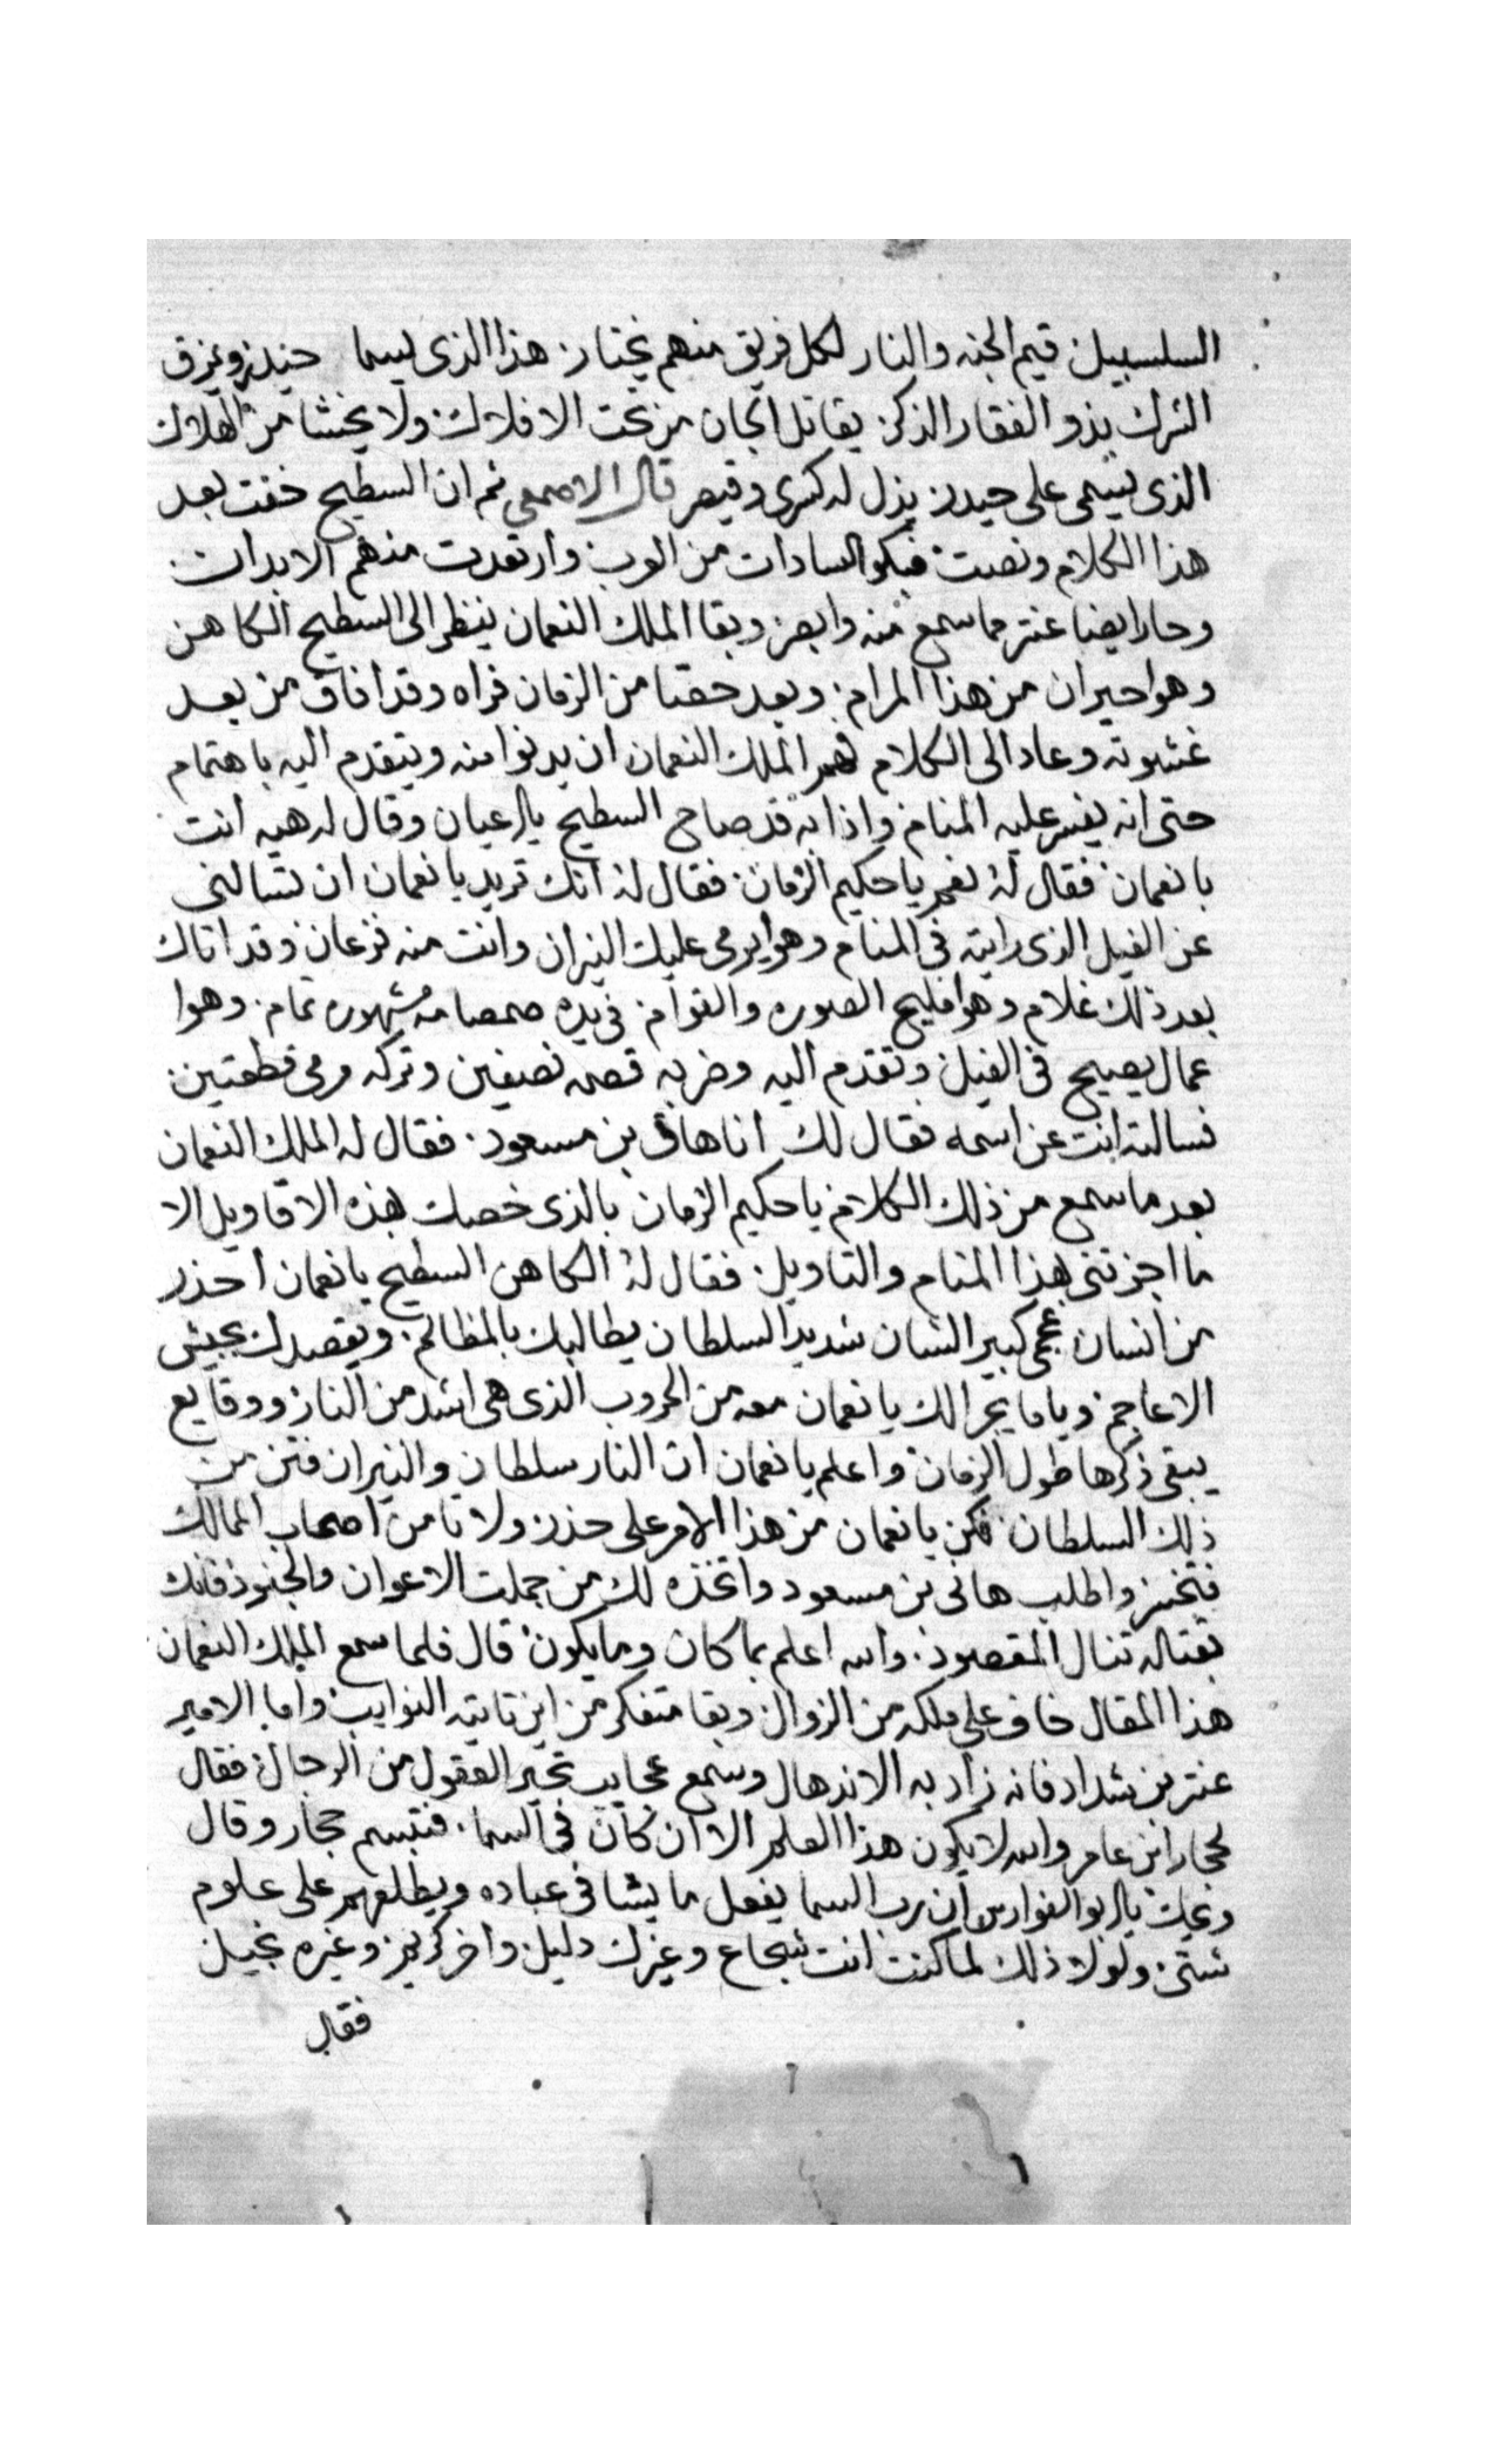 السلسبيل قيم الجنه والنار لكل فريق منهم يختار هذا الذى يسما حيدر ويمزق
الشرك بذو الفقار الذكر يقاتل الجان من تحت الافلاك ولا يخشا من الهلاك
الذى يسمى على حيدر يذل له كسرى وقيصر قال الاصمعي ثم ان السطيح خفت بعد
هذا الكلام ونصت فبكوا السادات من العرب وارتعدت منهم الابدان
وحار ايضا عنتر مما سمع منه وابصر وبقا الملك النعمان ينظر الى السطيح الكاهن
وهوا حيران من هذا المرام وبعد حقبا من الزمان فراه وقد افاق من بعد
غشوته وعاد الى الكلام فهم الملك النعمان ان يدنوا منه ويتقدم اليه باهتمام
حتى انه يفسر عليه المنام واذا به قد صاح السطيح بالرعيان وقال له هيه انت
يا نعمان فقال له نعم يا حكيم الزمان فقال له انك تريد يا نعمان ان تسالنى
عن الفيل الذى رايته فى المنام وهوا يرمى عليك النيران وانت منه فزعان وقد اتاك
بعد ذلك غلام وهوا مليح الصوره والقوام فى يده صمصامه مشهوره تمام وهوا
عمال يصيح فى الفيل وتقدم اليه وضربه قصمه نصيفين وتركه مرمى قطعتين
فسالته انت عن اسمه فقال لك انا هانى بن مسعود فقال له الملك النعمان
بعد ما سمع من ذلك الكلام يا حكيم الزمان بالذى خصك بهذه الاقاويل الا
ما اخبرتنى بهذا المنام والتاويل فقال له الكاهن السطيح يا نعمان احذر
من انسان عجمى كبير الشان شديد السلطان يطالبك بالمظالم ويقصدك بجيش
الاعاجم وياما يجرا لك يا نعمان معه من الحروب الذى هى اشد من النار ووقايع
يبقى ذكرها طول الزمان واعلم يا نعمان ان النار سلطان والنيران فتن من
ذلك السلطان فكن يا نعمان من هذا الامر على حذر ولا تامن اصحاب الممالك
فتخسر واطلب هانى بن مسعود واتخذه لك من جملت الاعوان والجنود فانك
بقتاله تنال المقصود والله اعلم بما كان وما يكون قال فلما سمع الملك النعمان
هذا المقال خاف على ملكه من الزوال وبقا متفكر من اين تاتيه النوايب واما الامير
عنتر بن شداد فانه زاد به الاندهال وسمع عجايب تحير العقول من الرجال فقال
لحجار ابن عامر والله لا يكون هذا العلم الا ان كان فى السما فتبسم حجار وقال
ويحك يا ابو الفوارس ان رب السما يفعل ما يشا فى عباده ويطلعهم على علوم
شتى ولولا ذلك لما كنت انت شجاع وغيرك دليل واخر كريم وغيره بخيل
فقال